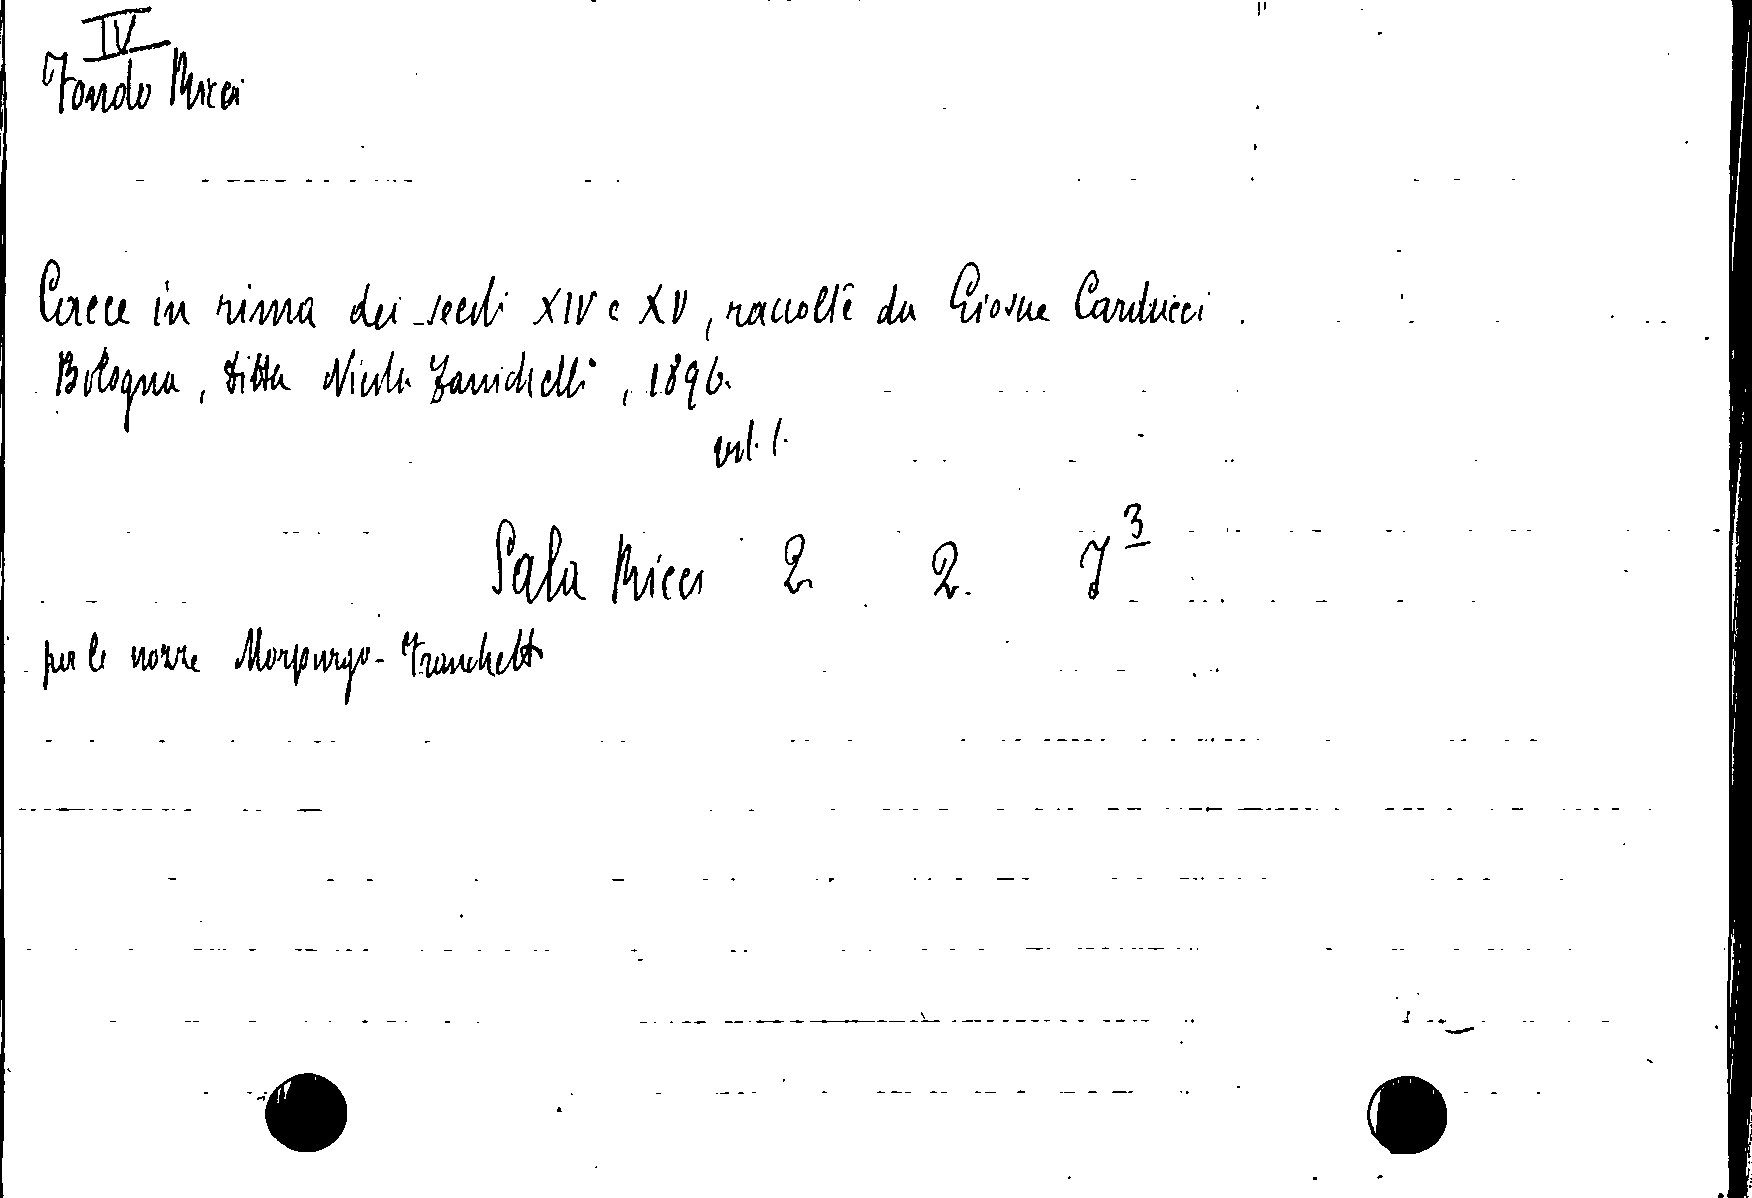 IV
Fondo Ricci
Cacce in rima dei secoli XIV e XV, raccolte da Giosue Carducci.
Bologna, Ditta Nicola Zanichelli, 1896.
vol. 1.
Sala Ricci 2 2. 7 3
per le nozze Morpurgo-Franchetti